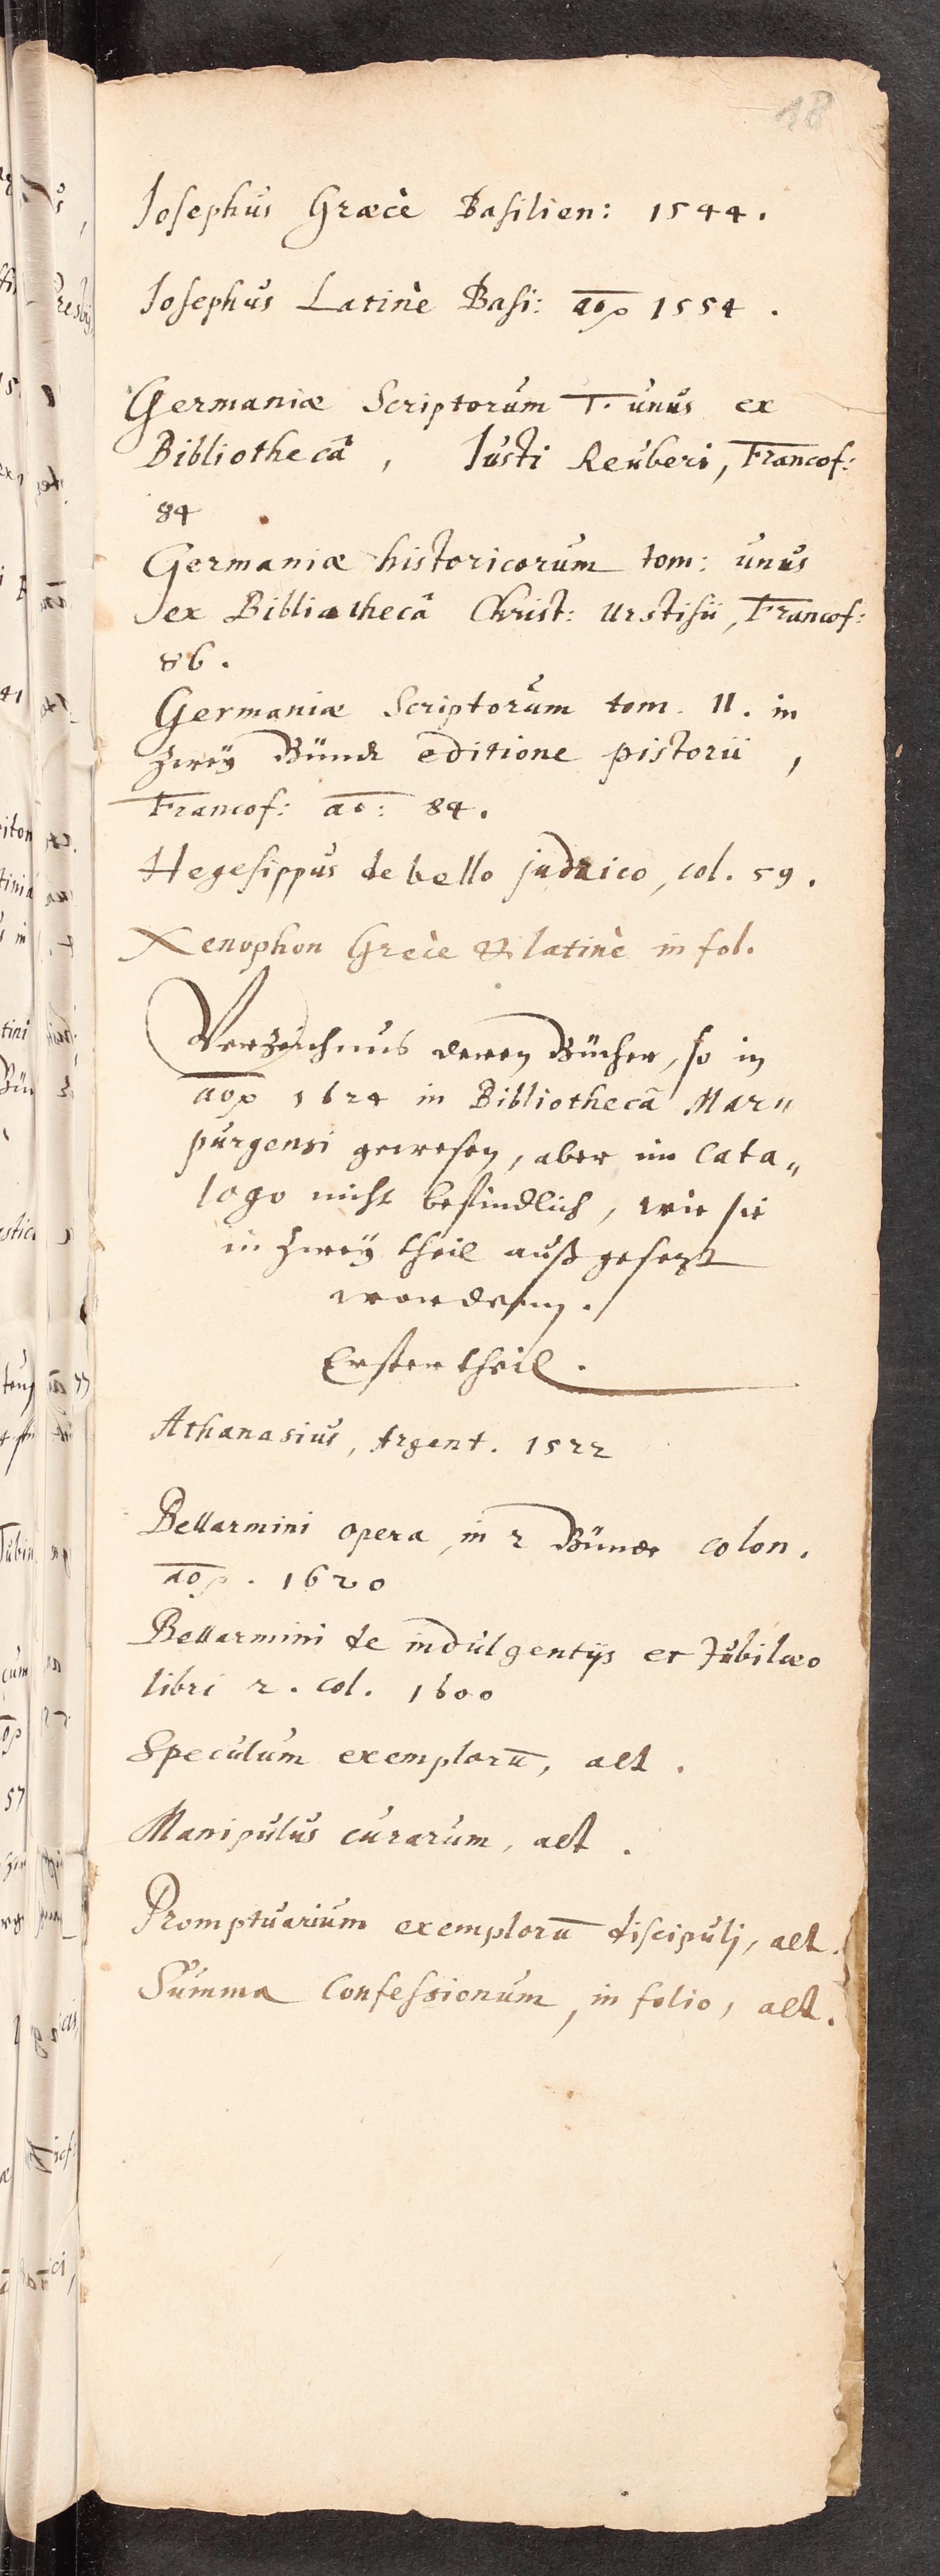 18
Josephus Græcè Basilien: 1544.
Josephus Latinè Basi: aōp 1554.
Germaniæ Scriptorum T. unus ex
Bibliothecâ, Justi Reuberi, Francof:
84
Germaniæ historicorum tom: unus
ex Bibliothecâ Christ: Urstisii, Francof:
86.
Germaniæ Scriptorum tom. II. in
zweÿ Bünde editione pistorii,
Francof: aō: 84.
Hegesippus de bello judaico, col. 59.
Xenophon Grecè & latinè in fol.
Verzeichnus deren Bücher, so in
aōp 1624 in Bibliothecâ Mar„
purgensi gewesen, aber im Cata„
logo nicht befindlich, wie sie
in zweÿ theil außgesezt
worden.
Erster theil.
Athanasius, Argent. 1522
Bellarmini opera, in 2 Bünde colon.
aōp. 1620
Bellarmini de indulgentijs et Jubilæo
libri 2. col. 1600
Speculum exemplorū, alt.
Manipulus curarum, alt.
Promptuarium exemplorū discipulj, alt.
Summa Confessionum, in folio, alt.